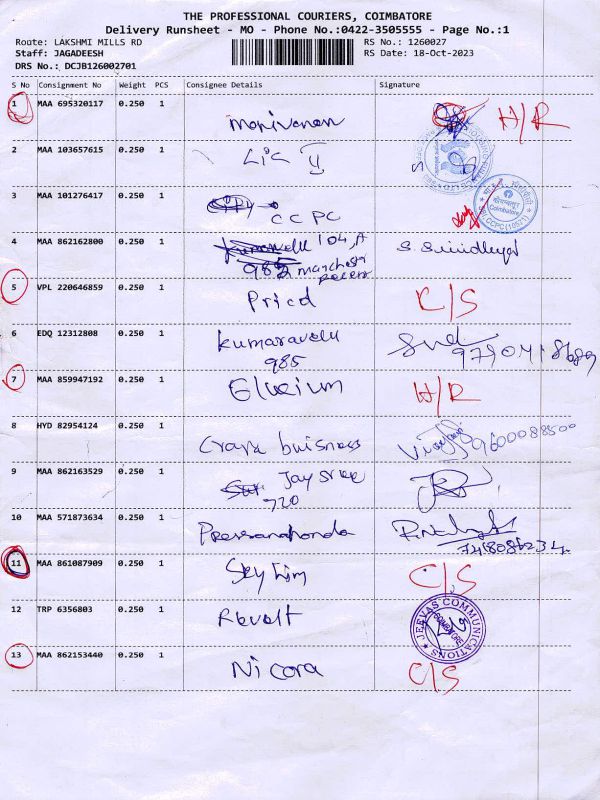 THE PROFESSIONAL COURIERS, COIMBATORE
Delivery Runsheet - MO - Phone No.:0422-3505555 - Page No.:1
Route: LAKSHMI MILLS RD RS No.: 1260027
Staff: JAGADEESH RS Date: 18-Oct-2023
DRS No.: DCJB126002701
S No Consignment No Weight PCS Consignee Details Signature
1 MAA 695320117 0.250 1 Manivanan H/R
2 MAA 103657615 0.250 1 LIC
3 MAA 101276417 0.250 1 CCPC
4 MAA 862162800 0.250 1 104, A
985 manchester
5 VPL 220646859 0.250 1 Pricol C/S
6 EDQ 12312808 0.250 1 Kumaravelu
985
7 MAA 859947192 0.250 1 H/R
8 HYD 82954124 0.250 1 buisness 9600088500
9 MAA 862163529 0.250 1 Jay Sree
720
10 MAA 571873634 0.250 1
11 MAA 861087909 0.250 1 C/S
12 TRP 6356803 0.250 1 Revolt
JEEVAS COMMUNICATIONS
COIMBATORE
13 MAA 862153440 0.250 1 Nicora C/S